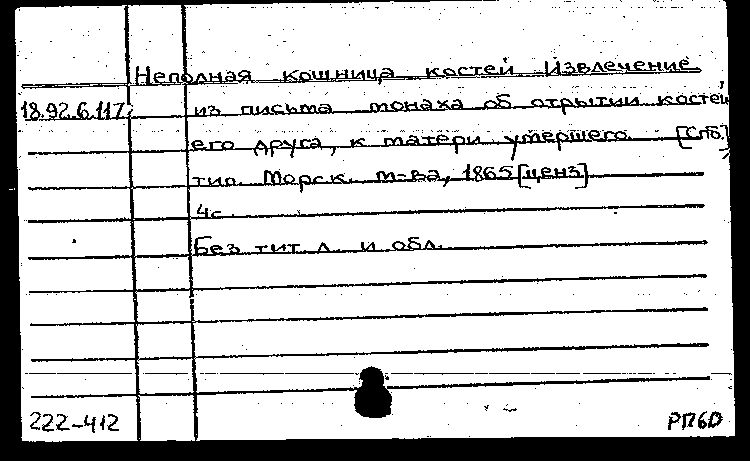 Неполная кошница костей Извлечение
18.92.6.117: из письма монаха об отрытии костей
его друга, к матери умершего. [Спб.]
тип. Морск. м-ва, 1865 [ценз]
4с.
Без тит. л. и обл.
222-412 РПБО